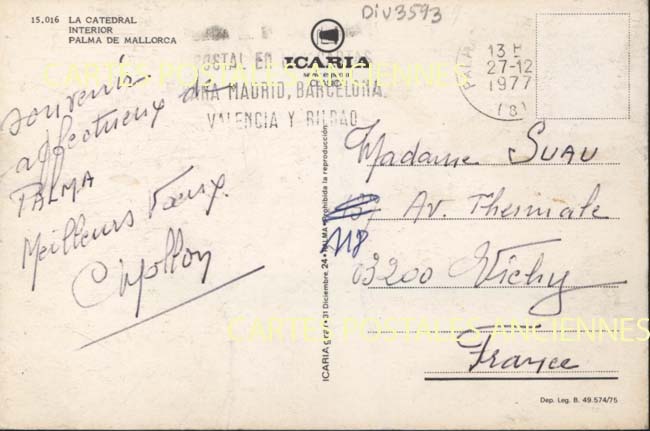 15.016 LA CATEDRAL
INTERIOR
PALMA DE MALLORCA
Div3593
ICARIA
POSTAL EN
MADRID, BARCELONA,
VALENCIA Y BILBAO
PALMA
13 H
27-12
1977
(8)
CARTES POSTALES ANCIENNES
souvenirs
affectueux de
PALMA
Meilleurs Vœux.
Madame SUAU
118 Av. Thermale
03200 Vichy
France
CARTES POSTALES ANCIENNES
ICARIA 31 Diciembre, 24 - PALMA - Prohibida la reproducción
Dep. Leg. B. 49.574/75